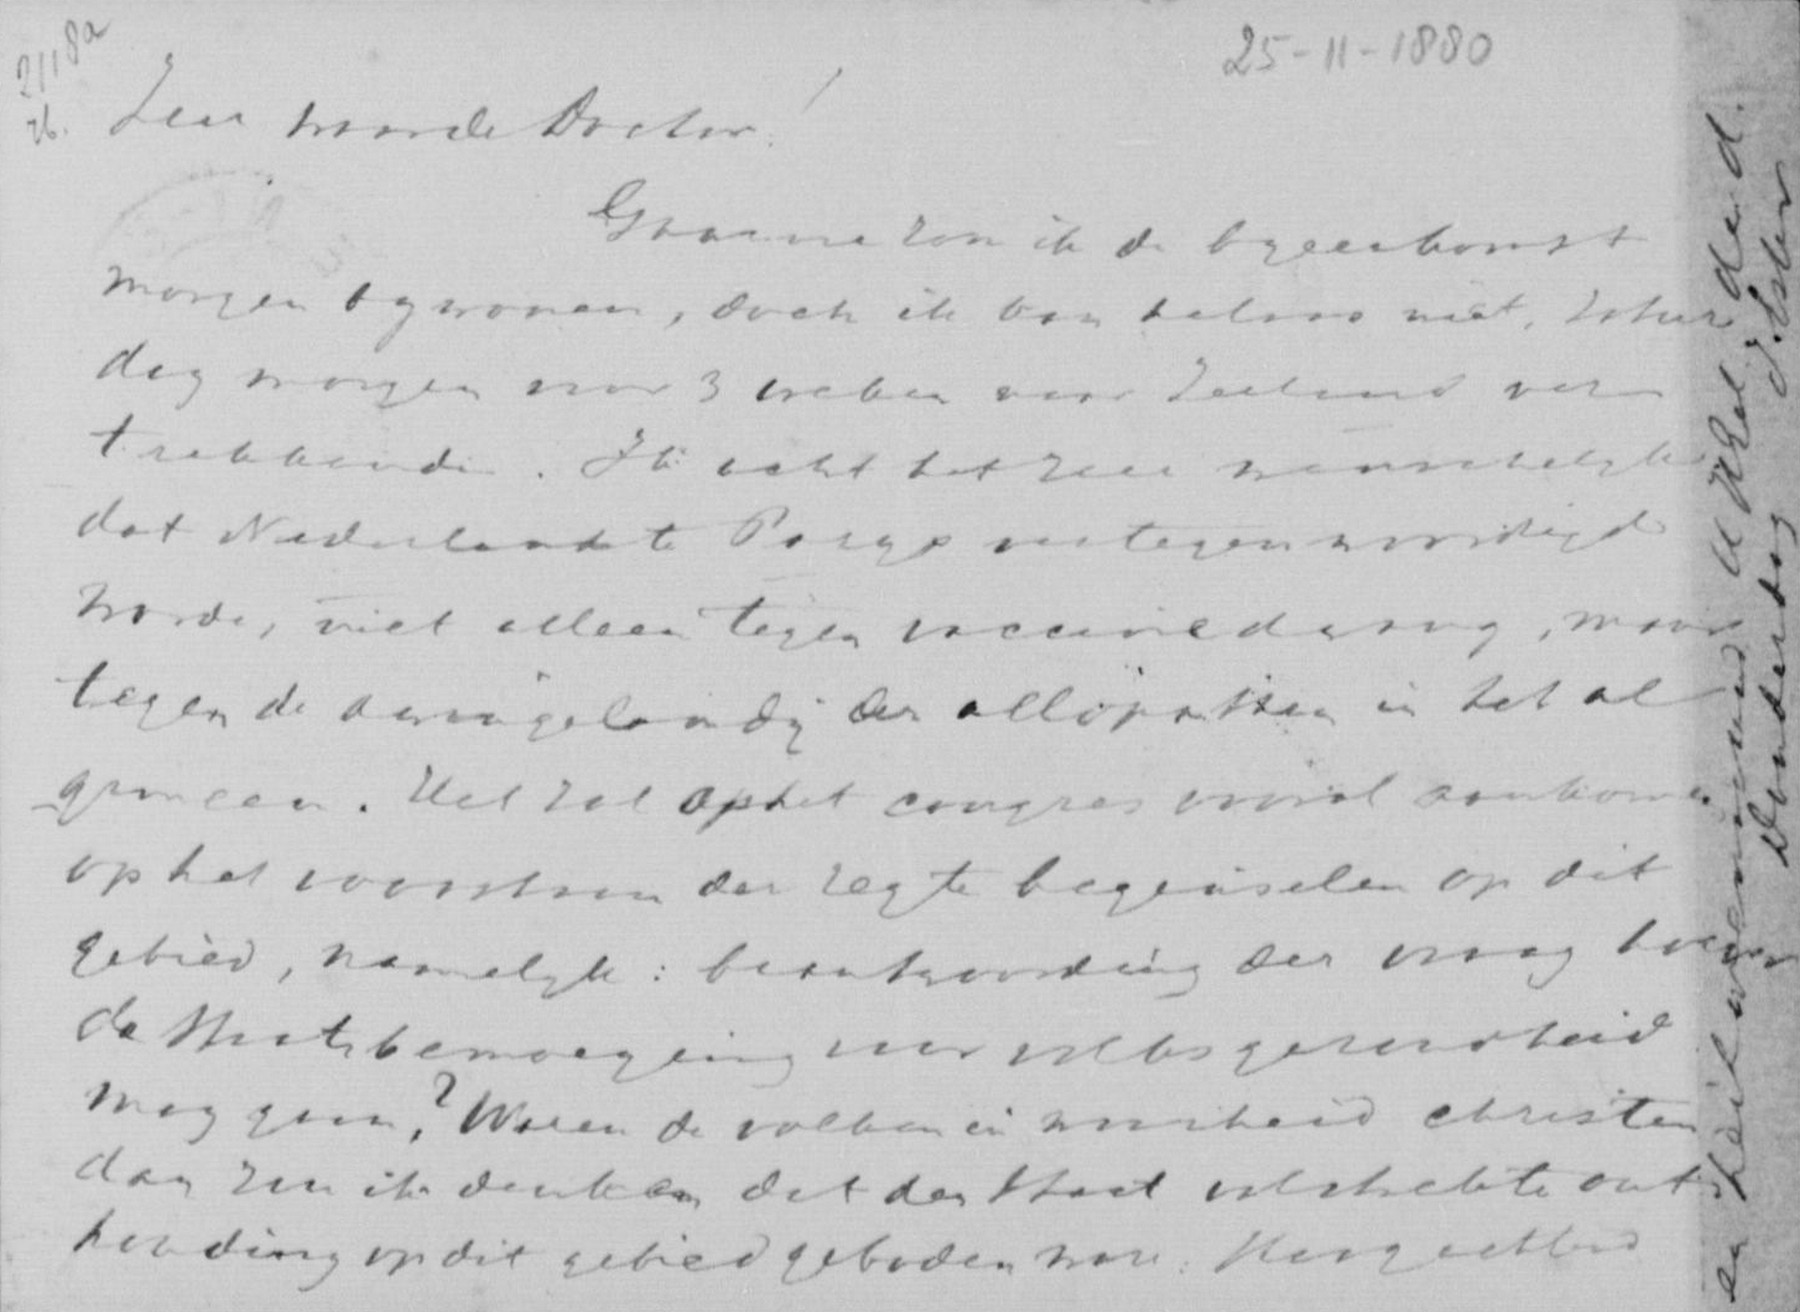 2118a
26.
25-11-1880
Zeer waarde Doctor!
Gaarne zou ik de byeenkomst
morgen bywonen, doch ik kan helaas niet, Zatur
dag morgen voor 3 weken naar Zeeland ver
trekkende. Ik acht het zeer wenschelyk
dat Nederland te Parys vertegenwoordigd
worde, niet alleen tegen vaccinedwang, maar
tegen de dwingelandij der allöpathen in het al
gemeen. Het zal op het congres vooral aankomen
op het voorstaan der regte beginselen op dit
gebied, namelyk: beantwoording der vraag hoever
de Staatsbemoeijing voor volksgezondheid
mag gaan? Waren de volken in waarheid christen
dan zou ik denken dat den Staat volstrekte ont
houding op dit gebied geboden ware.
en heilwenschend U HEd. dw. d.
Donderdag